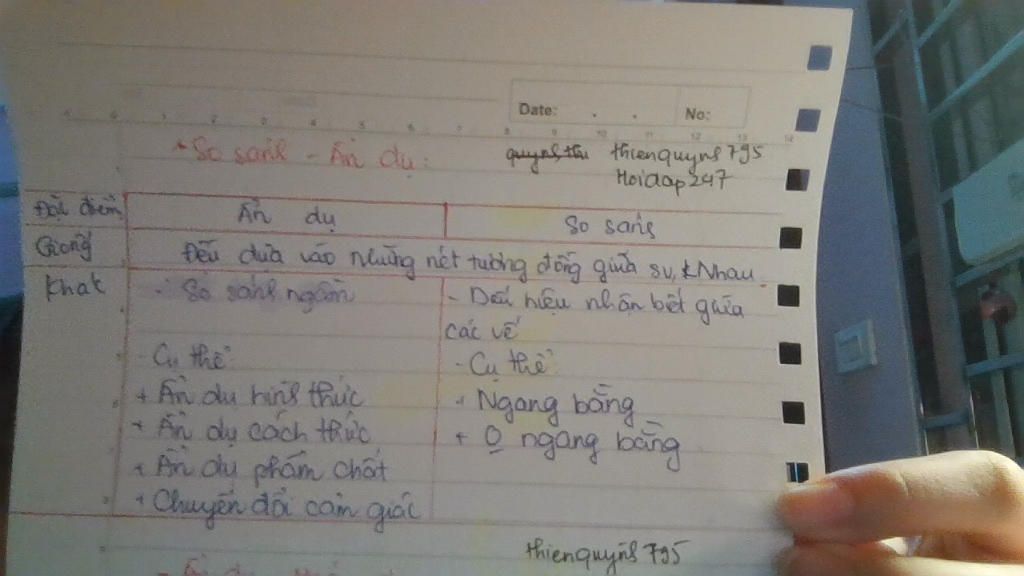 Date: . . No:
* So sánh - Ẩn dụ: quynh thu thienquynh795
Hoidap247
Đặc điểm Ẩn dụ So sánh
Giống Đều dựa vào những nét tương đồng giữa sv, khau
Khác - So sánh ngầm - Dấu hiệu nhận biết giữa
các vế
- Cụ thể: - Cụ thể
+ Ẩn dụ hình thức + Ngang bằng
+ Ẩn dụ cách thức + 0 ngang bằng
+ Ẩn dụ phẩm chất
+ Chuyển đổi cảm giác
thienquynh795
- Ẩn dụ